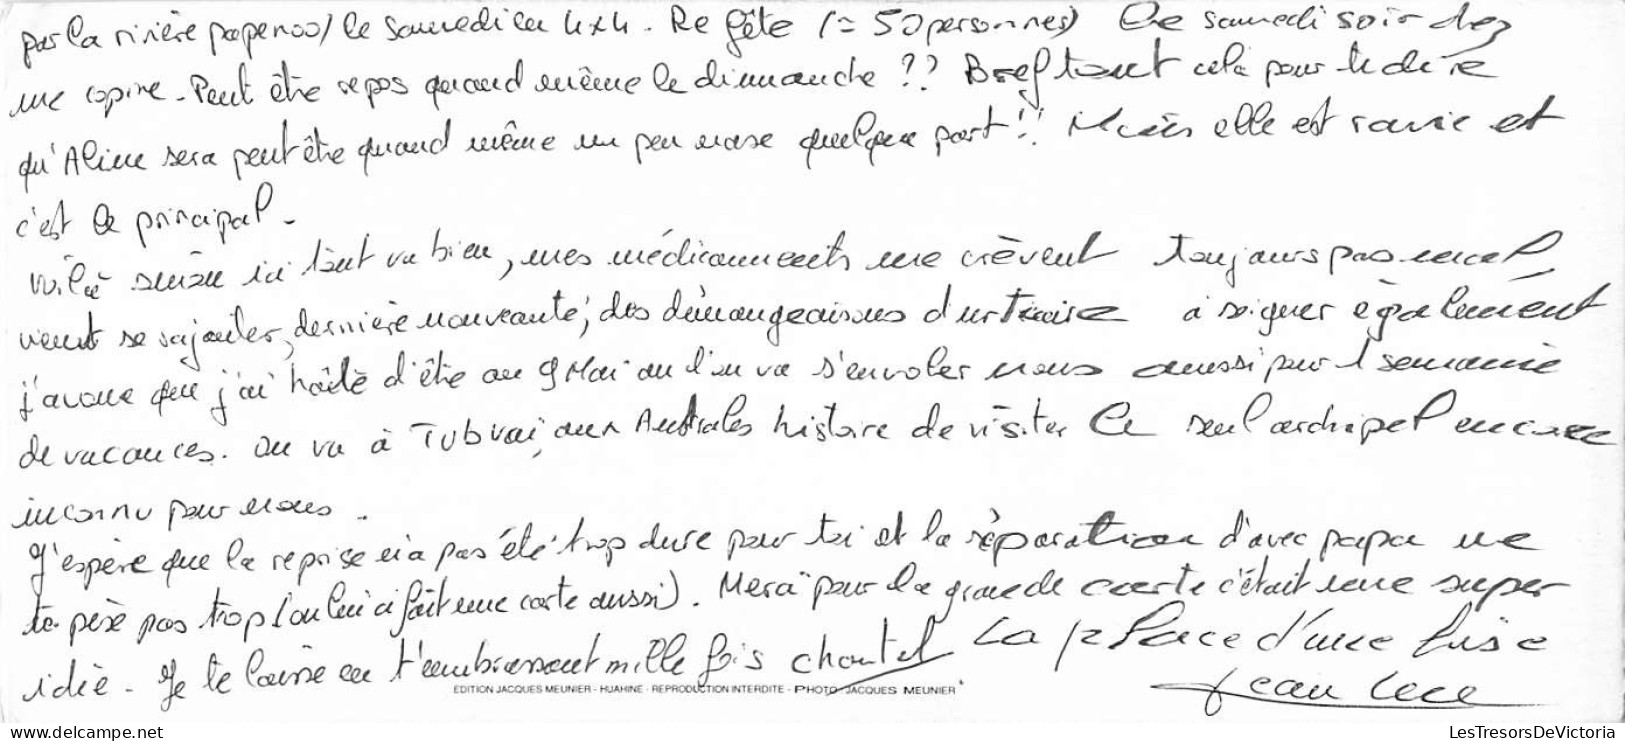 par la rivière papenoo) le samedi en 4x4. Re fête (= 50 personnes) Le samedi soir chez
une copine. Peut être repos quand même le dimanche ?? Bref tout cela pour te dire
qu'Aline sera peut être quand même un peu nase quelque part !! Mais elle est ravie et
c'est le principal.
Voilà sinon ici tout va bien, mes médicaments me crèvent toujours pas mal
vient se rajouter, dernière nouveauté, des démangeaisons d'urticaire à soigner également
j'avoue que j'ai hâte d'être au 9 Mai où l'on va s'envoler nous aussi pour 1 semaine
de vacances. on va à Tubuai, aux Australes histoire de visiter le seul archipel encore
inconnu pour nous.
J'espère que la reprise n'a pas été trop dure pour toi et la séparation d'avec papa ne
te pèse pas trop (on lui a fait une carte aussi). Merci pour la grande carte c'était une super
idée. Je te laisse en t'embrassant mille fois chantal La place d'une bise
Jean Luc
EDITION JACQUES MEUNIER - HUAHINE - REPRODUCTION INTERDITE - PHOTO JACQUES MEUNIER
LesTresorsDeVictoria
delcampe.net